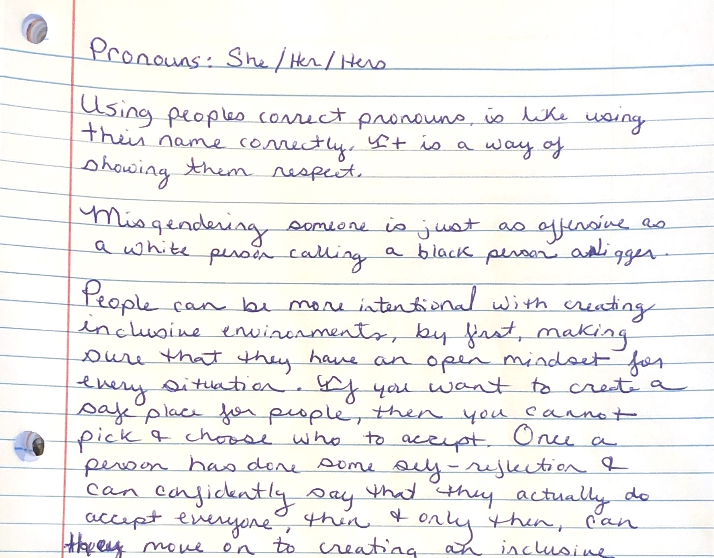 Pronouns: She/Her/Hers
Using peoples correct pronouns, is like using
their name correctly. It is a way of
showing them respect.
Misgendering someone is just as offensive as
a white person calling a black person a nigger.
People can be more intentional with creating
inclusive environments, by first, making
sure that they have an open mindset for
every situation. If you want to create a
safe place for people, then you cannot
pick & choose who to accept. Once a
person has done some self-reflection &
can confidently say that they actually do
accept everyone, then & only then, can
they move on to creating an inclusive